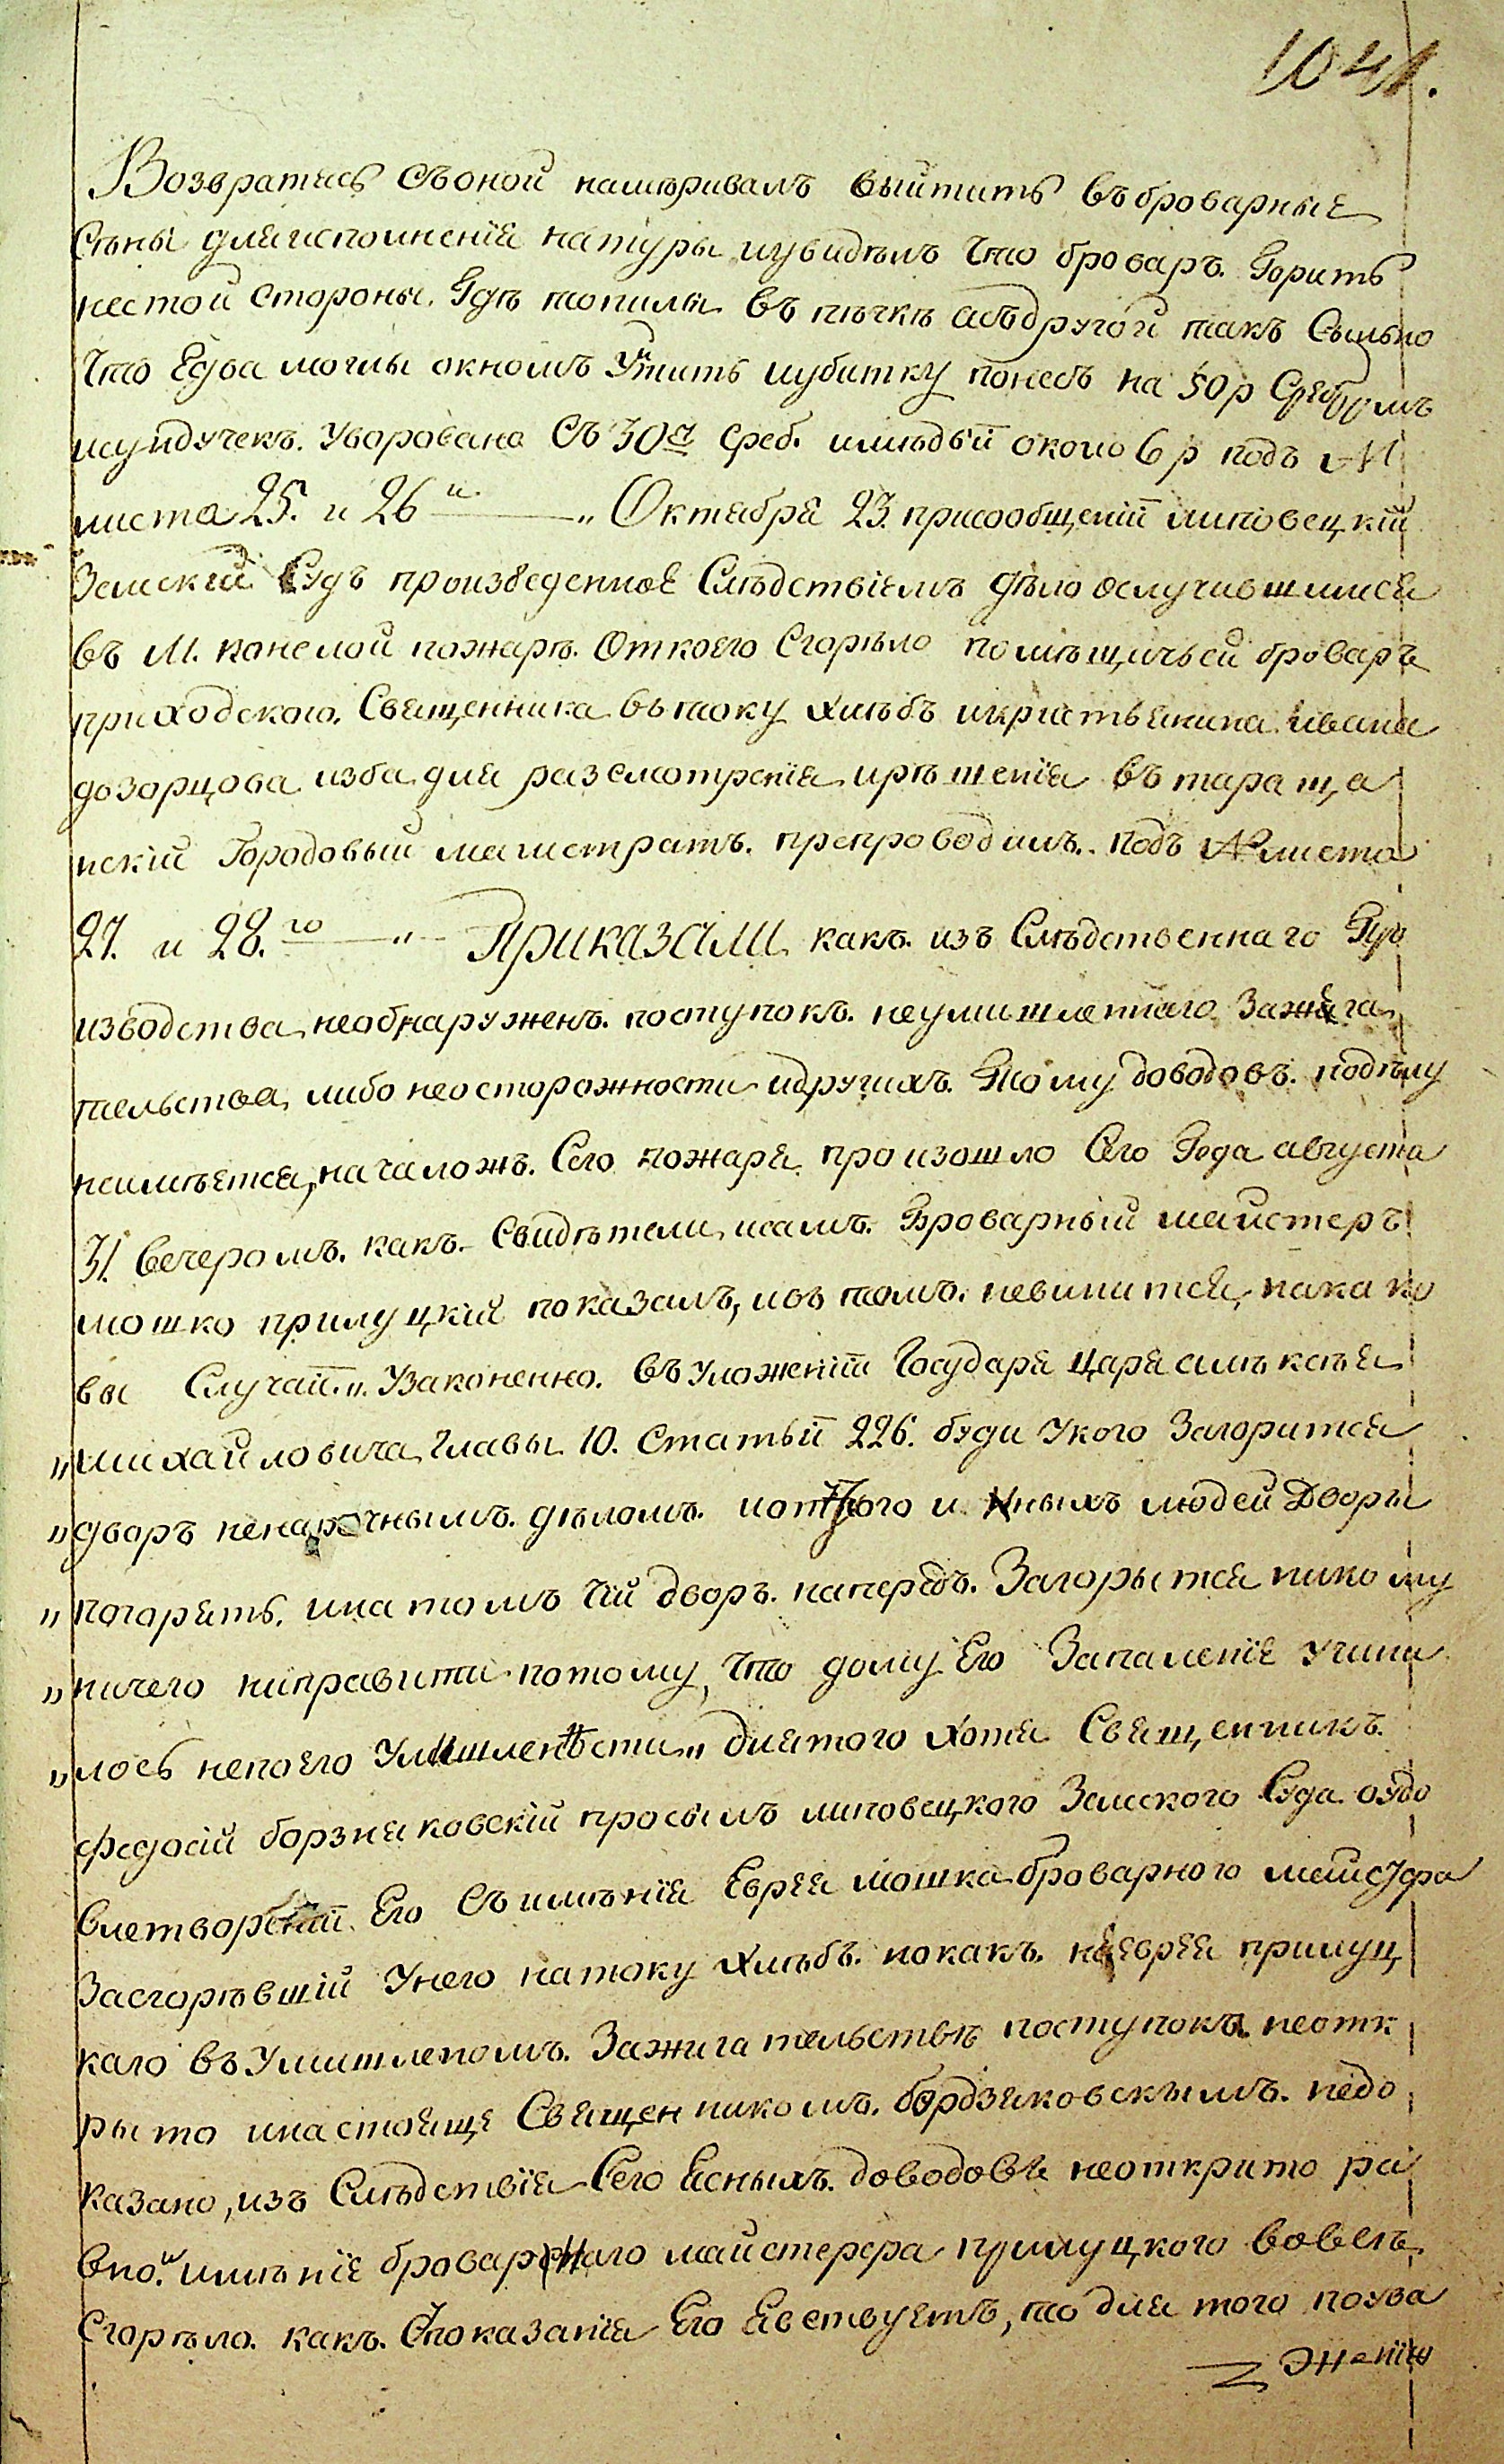 1041.
Возвратясь съоной намѣривалъ выйтить въброварные
Сѣны дляисполненія натуры иувидѣлъ что броваръ. Горитъ
нестой стороны. Гдѣ топили въ пѣчкѣ асъдругой такъ Сыльно
что Едва могли окномъ Утить иубитку понесъ на 50 р Сребромъ
исундучекъ. Уворовано Съ 30ю среб. имѣдъй около 6 р подъ №
листа 25. и 26 м ——— „ Октября 23. присообщеніи липовецкій
Земскій Судъ произведенное Слѣдствіемъ дѣло ослучившимся
въ М. конелой пожарѣ. Откоего Сгорѣло помѣщичьей броваръ
приходского. Священника вътоку хлѣбъ икрестьянина ивана
дозорцова изба для разсмотренія ирѣшенія въ тараща
нскій Городовый магистратъ. препроводилъ. подъ № листа
27. и 28. го —— „ — Приказали какъ. изъ Слѣдственнаго Про
изводства необнаруженъ. поступокъ. неумишленнаго Зажига
тельства, либо неосторожности идругихъ. Ктому доводовъ. подѣлу
неимѣется, началожъ. Сего пожара произошло Сего Года августа
31. вечеромъ. какъ. Свидѣтели исамъ. Броварный майстеръ
мошко прилуцкій показалъ, ивъ томъ. невинится, накако
вы Случаи „. Узаконенно. въ Уложеніи Государя Царя алѣксѣя
„михайловича Главы 10. Статьи 226. буди Укого Загорится
„дворъ ненарочнымъ. дѣломъ. иоттого и Иныхъ людей Дворы
„погорятъ. ина томъ Чій дворъ. напередъ. Загорытся никому
„ничего неправити потому, что дому Его Запаленіе учини
„лось непоего Умишленности „ длятого хотя Священникъ.
Федосій борзняковскій просылъ липовецкого Земского Суда оудо
влетвореніи Его Съимѣнія Еврея мошка броварного майстра
Засгорѣвшій Унего натоку хлѣбъ. нокакъ. наеврея прилуц
каго въ Умишленомъ. Зажигательствѣ поступокъ неотк
рыто инастояще Священникомъ. бордзяковскымъ. недо
казано, изъ Слѣдствія Сего Ясныхъ. доводовъ неоткрито ра
вно. и имѣніе броварного майстера прилуцкого вовсѣ
Сгорѣло. какъ. Споказанія Его Явствуетъ, то для того поува
женію